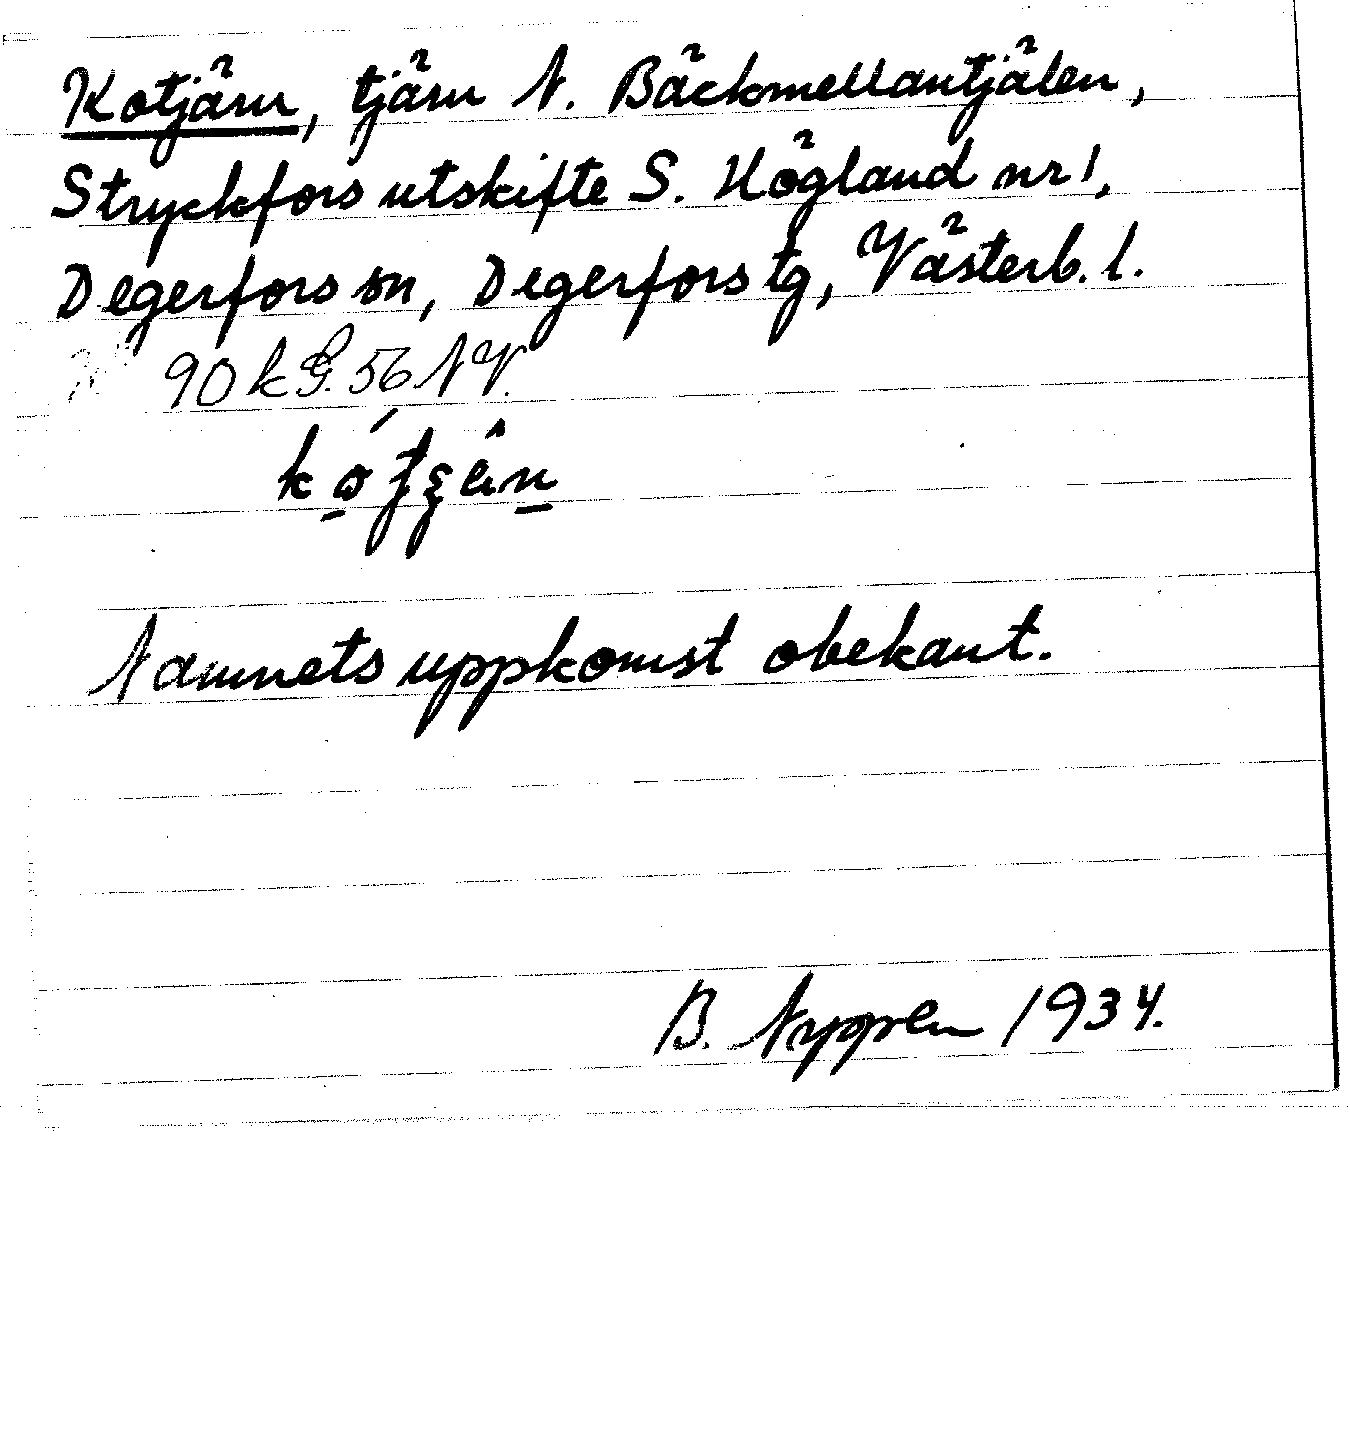 Kotjärn, tjärn N. Bäckmellantjälen,
Stryckfors utskifte S. Högland nr 1,
Degerfors sn, Degerfors tg, Västerb. l.
90 k G. 56 NV.
Namnets uppkomst obekant.
B. Nyppen 1934.